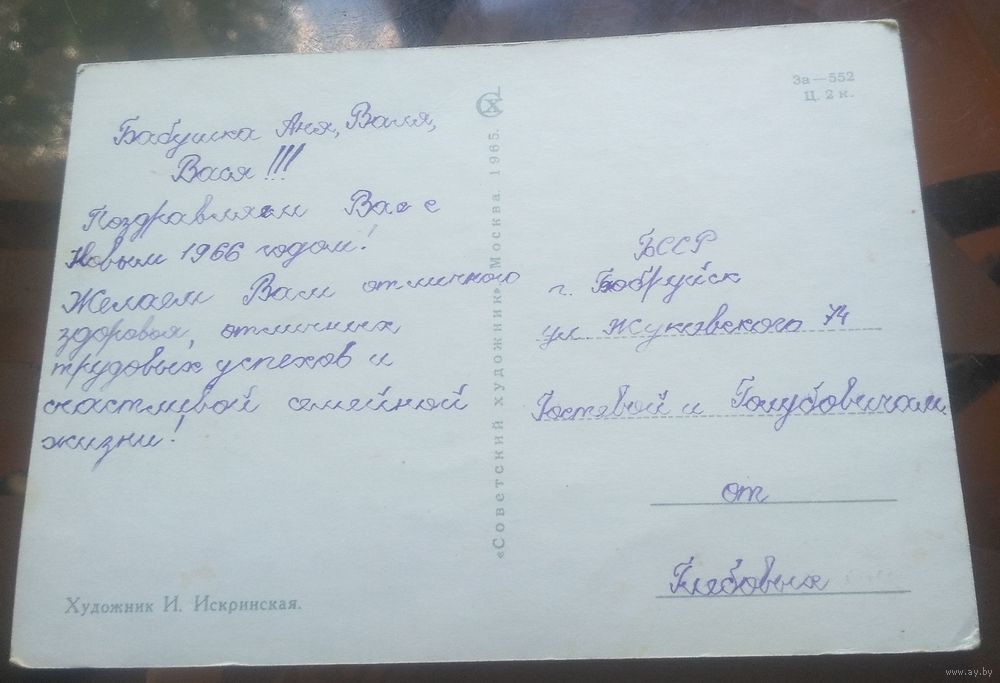 Бабушка Аня, Валя,
Вася!!!
Поздравляем Вас с
Новым 1966 годом!
Желаем Вам отличного
здоровья, отличных
трудовых успехов и
счастливой семейной
жизни!
Художник И. Искринская.
«Советский художник» Москва. 1965.
За—552
Ц. 2 к.
БССР
г. Бобруйск
ул Жуковского 74
Гостевой и Голубовичам
от
Глебовых
www.ay.by